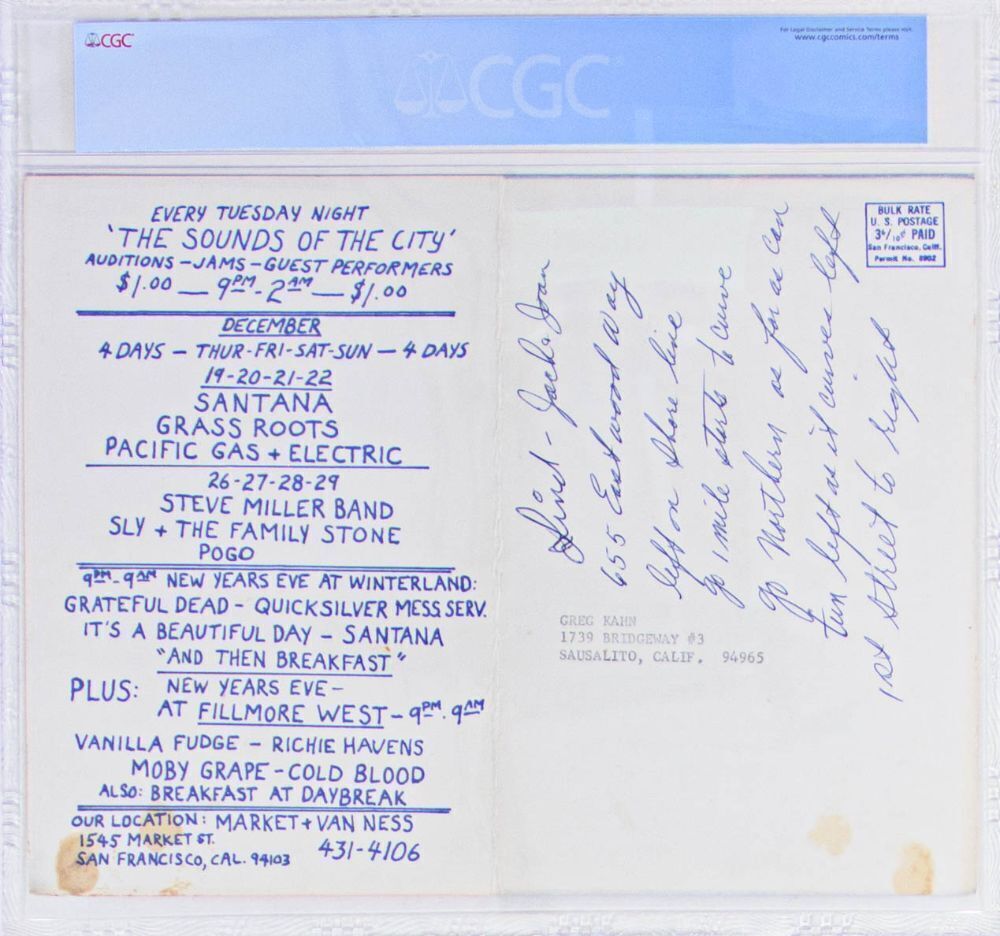 CGC
CGC
For Legal Disclaimer and Service Terms please visit:
www.cgccomics.com/terms
EVERY TUESDAY NIGHT
'THE SOUNDS OF THE CITY'
AUDITIONS - JAMS - GUEST PERFORMERS
$1.00 — 9PM - 2AM — $1.00
DECEMBER
4 DAYS - THUR-FRI-SAT-SUN - 4 DAYS
19-20-21-22
SANTANA
GRASS ROOTS
PACIFIC GAS + ELECTRIC
26-27-28-29
STEVE MILLER BAND
SLY + THE FAMILY STONE
POGO
9PM-9AM NEW YEARS EVE AT WINTERLAND:
GRATEFUL DEAD - QUICKSILVER MESS SERV.
IT'S A BEAUTIFUL DAY - SANTANA
"AND THEN BREAKFAST"
PLUS: NEW YEARS EVE-
AT FILLMORE WEST - 9PM. 9AM
VANILLA FUDGE - RICHIE HAVENS
MOBY GRAPE - COLD BLOOD
ALSO: BREAKFAST AT DAYBREAK
OUR LOCATION: MARKET + VAN NESS
1545 MARKET ST.
SAN FRANCISCO, CAL. 94103 431-4106
BULK RATE
U. S. POSTAGE
PAID
San Francisco, Calif.
Permit No. 8902
- Jack & Joan
655 Eastwood Way
left on Shore line
go 1 mile starts to curve
go Northern as far as can
turn left as it curves left
1st street to right
GREG KAHN
1739 BRIDGEWAY #3
SAUSALITO, CALIF. 94965